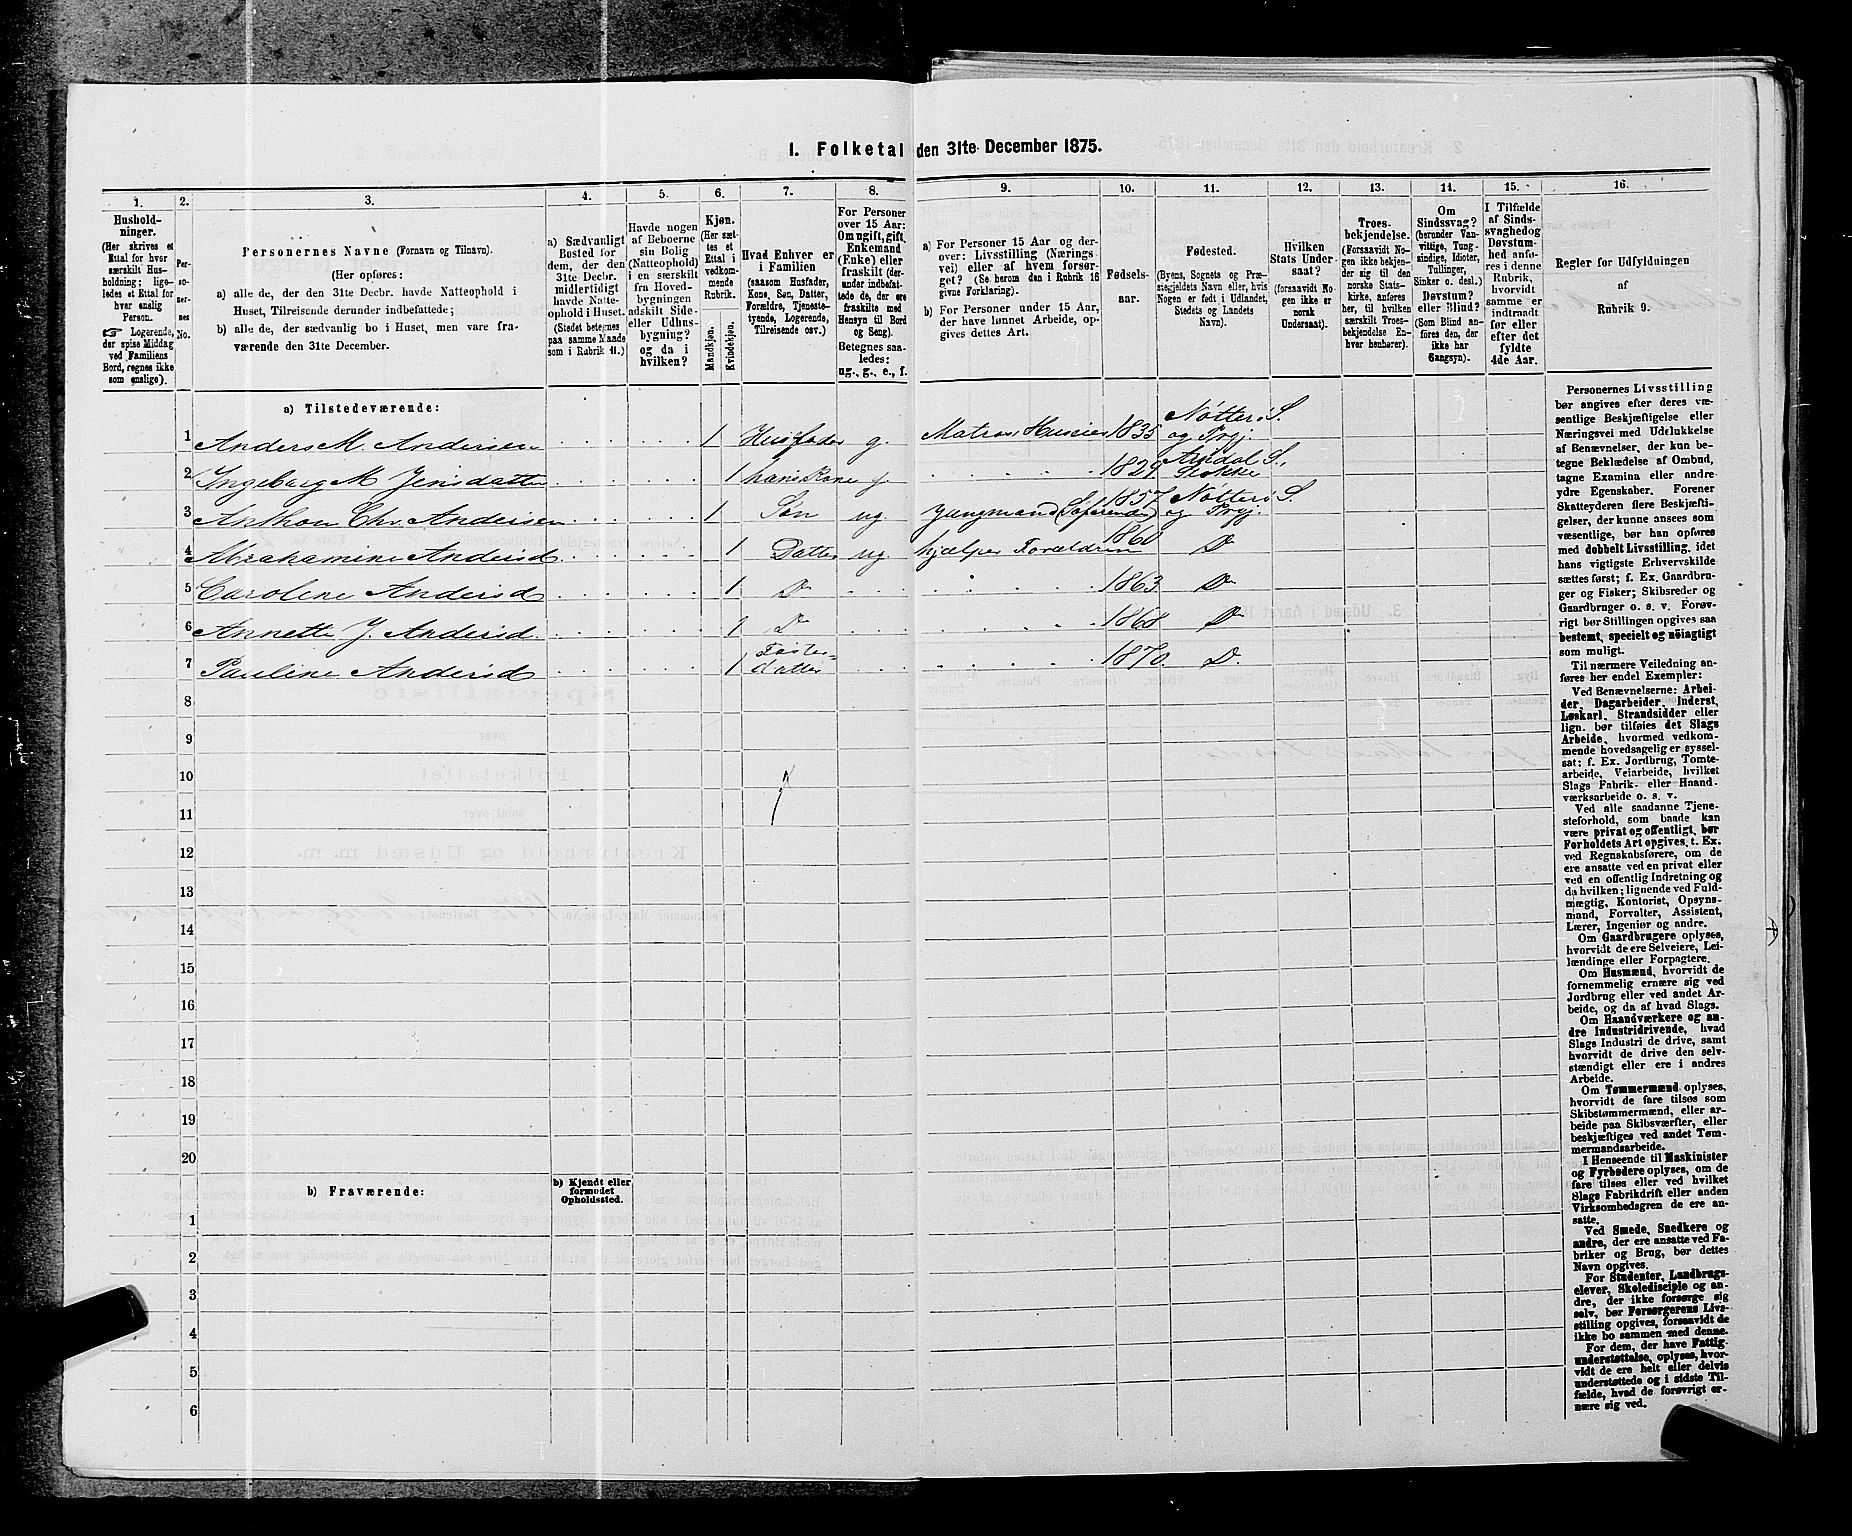 1. Folketal den 31te December 1875.
1. 2. 3. 4. 5. 6. 7. 8. 9. 10. 11. 12. 13. 14. 15. 16.
Hushold-
ninger.
(Her skrives et
Ettal for hver
særskilt Hus-
holdning; lige-
ledes et Ettal for
hver enslig
Person.
☞ Logerende,
der spise Middag
ved Familiens
Bord, regnes ikke
som enslige).
Per-
so-
ner-
nes
No.
Personernes Navne (Fornavn og Tilnavn).
(Her opføres:
a) alle de, der den 31te Decbr. havde Natteophold i
Huset, Tilreisende derunder indbefattede;
b) alle de, der sædvanlig bo i Huset, men vare fra-
værende den 31te December.
a) Sædvanligt
Bosted for
dem, der den
31te Decbr.
midlertidigt
havde Natte-
ophold i Huset.
(Stedet betegnes
paa samme Maade
som i Rubrik 11.)
Havde nogen
af Beboerne
sin Bolig
(Natteophold)
i en særskilt
fra Hoved-
bygningen
adskilt Side-
eller Udhus-
bygning?
og da i
hvilken?
Kjøn.
(Her sæt-
tes et
Ettal i
vedkom-
mende
Rubrik.
Mandkjøn.
Kvindekjøn.
Hvad Enhver er
i Familien
(saasom Husfader,
Kone, Søn, Datter,
Forældre, Tjeneste-
tyende, Logerende,
Tilreisende osv.)
For Personer
over 15 Aar:
Om ugift, gift,
Enkemand
(Enke) eller
fraskilt (der-
under indbefat-
tede de, der ere
fraskilte med
Hensyn til Bord
og Seng).
Betegnes saa-
ledes:
ug., g., e., f.
a) For Personer 15 Aar og der-
over: Livsstilling (Nærings-
vei) eller af hvem forsør-
get? (Se herom den i Rubrik 16
givne Forklaring).
b) For Personer under 15 Aar,
der have lønnet Arbeide, op-
gives dettes Art.
Fødsels-
aar.
Fødested.
(Byens, Sognets og Præ-
stegjeldets Navn eller, hvis
Nogen er født i Udlandet,
Stedets og Landets
Navn).
Hvilken
Stats Under-
saat?
(forsaavidt No-
gen ikke er
norsk
Undersaat).
Troes-
bekjendelse.
(Forsaavidt No-
gen ikke bekjen-
der sig til den
norske Stats-
kirke, anføres
her, til hvilken
særskilt Troes-
bekjendelse En-
hver henhører).
Om
Sindssvag?
(herunder Van-
vittige, Tung-
sindige, Idioter,
Tullinger,
Sinker o. desl.)
Døvstum?
eller Blind?
(Som Blind an-
føres den, der
ikke har
Gangsyn).
I Tilfælde
af Sinds-
svaghed og
Døvstum-
hed anfø-
res i denne
Rubrik,
hvorvidt
samme er
indtraadt
før eller
efter det
fyldte
4de Aar.
Regler for Udfyldningen
af
Rubrik 9.
a) Tilstedeværende:
1 Anders M. Andersen 1 Husfader g. Matros Huseier 1835 Nøtterø S. og Prgj.
2 Ingeborg M Jensdatter 1 hans Kone g. 1829 S., Stokke
3 Anthon Chr. Andersen 1 Søn ug Jungmand (Søfarende) 1857 Nøtterø S. og Prgj.
4 Abrahamine Andersd. 1 Datter ug hjælper Forældrene 1860 Do
5 Carolene Andersd 1 Do 1863 Do
6 Annette J. Andersd. 1 Do 1868 Do
7 Pauline Andersd 1 Foster-
datter 1870 Do.
8
9
10
11
12
13
14
15
16
17
18
19
20
b) Fraværende:
b) Kjendt eller
formodet
Opholdssted.
1
2
3
4
5
6
Personernes Livsstilling
bør angives efter deres væ-
sentlige Beskjæftigelse eller
Næringsvei med Udelukkelse
af Benævnelser, der kun be-
tegne Beklædelse af Ombud,
tagne Examina eller andre
ydre Egenskaber. Forener
Skatteyderen flere Beskjæfti-
gelser, der kunne ansees som
væsentlige, bør han opføres
med dobbelt Livsstilling, idet
hans vigtigste Erhvervskilde
sættes først; f. Ex. Gaardbru-
ger og Fisker; Skibsreder og
Gaardbruger o. s. v. Forøv-
rigt bør Stillingen opgives saa
bestemt, specielt og nöiagtigt
som muligt.
Til nærmere Veiledning an-
føres her endel Exempler:
Ved Benævnelserne: Arbei-
der, Dagarbeider, Inderst,
Løskarl, Strandsidder eller
lign. bør tilføies det Slags
Arbeide, hvormed vedkom-
mende hovedsagelig er syssel-
sat; f. Ex. Jordbrug, Tomte-
arbeide, Veiarbeide, hvilket
Slags Fabrik- eller Haand-
værksarbeide o. s. v.
Ved alle saadanne Tjene-
steforhold, som baade kan
være privat og offentligt, bør
Forholdets Art opgives, t. Ex.
ved Regnskabsførere, om de
ere ansatte ved en privat eller
ved en offentlig Indretning og
da hvilken; lignende ved Fuld-
mægtig, Kontorist, Opsyns-
mand, Forvalter, Assistent,
Lærer, Ingeniør og andre.
Om Gaardbrugere oplyses,
hvorvidt de ere Selveiere, Lei-
lændinge eller Forpagtere.
Om Husmænd, hvorvidt de
fornemmelig ernære sig ved
Jordbrug eller ved andet Ar-
beide, og da af hvad Slags.
Om Haandværkere og an-
dre Industridrivende, hvad
Slags Industri de drive, samt
hvorvidt de drive den selv-
stændigt eller ere i andres
Arbeide.
Om Tømmermænd oplyses,
hvorvidt de fare tilsøs som
Skibstømmermænd, eller ar-
beide paa Skibsværfter, eller
beskjæftiges ved andet Tøm-
mermandsarbeide.
I Henseende til Maskinister
og Fyrbødere oplyses, om de
fare tilsøs eller ved hvilket
Slags Fabrikdrift eller anden
Virksomhedsgren de ere an-
satte.
Ved Smede, Snedkere og
andre, der ere ansatte ved Fa-
briker og Brug, bør dettes
Navn opgives.
For Studenter, Landbrugs-
elever, Skoledisciple og an-
dre, der ikke forsørge sig
selv, bør Forsørgerens Livs-
stilling opgives, forsaavidt de
ikke bo sammen med denne.
For dem, der have Fattig-
understøttelse, oplyses, hvor-
vidt de ere helt eller delvis
understøttede og i sidste Til-
fælde, hvad de forøvrigt er-
nære sig ved.